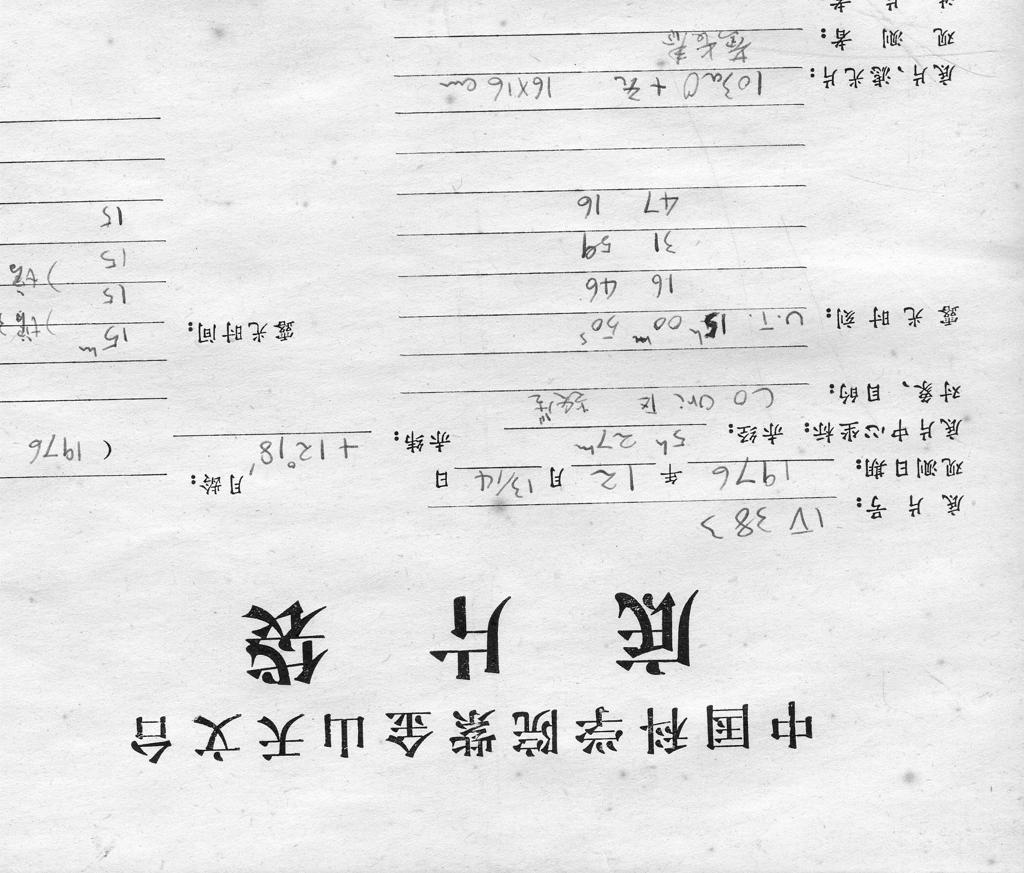 中国科学院紫金山天文台
底片袋
底片号: IV 383
观测日期: 1976 年 12 月 13/14 日 月龄:
底片中心坐标: 赤经: 5h 27m 赤纬: +12°18′ (1976
对象、目的: CO Ori 区
露光时刻: U.T. 15h 00m 50s 露光时间: 15m
16 46 15
31 59 15
47 16 15
底片、滤光片: 103aO + 无 16×16 cm
观测者: